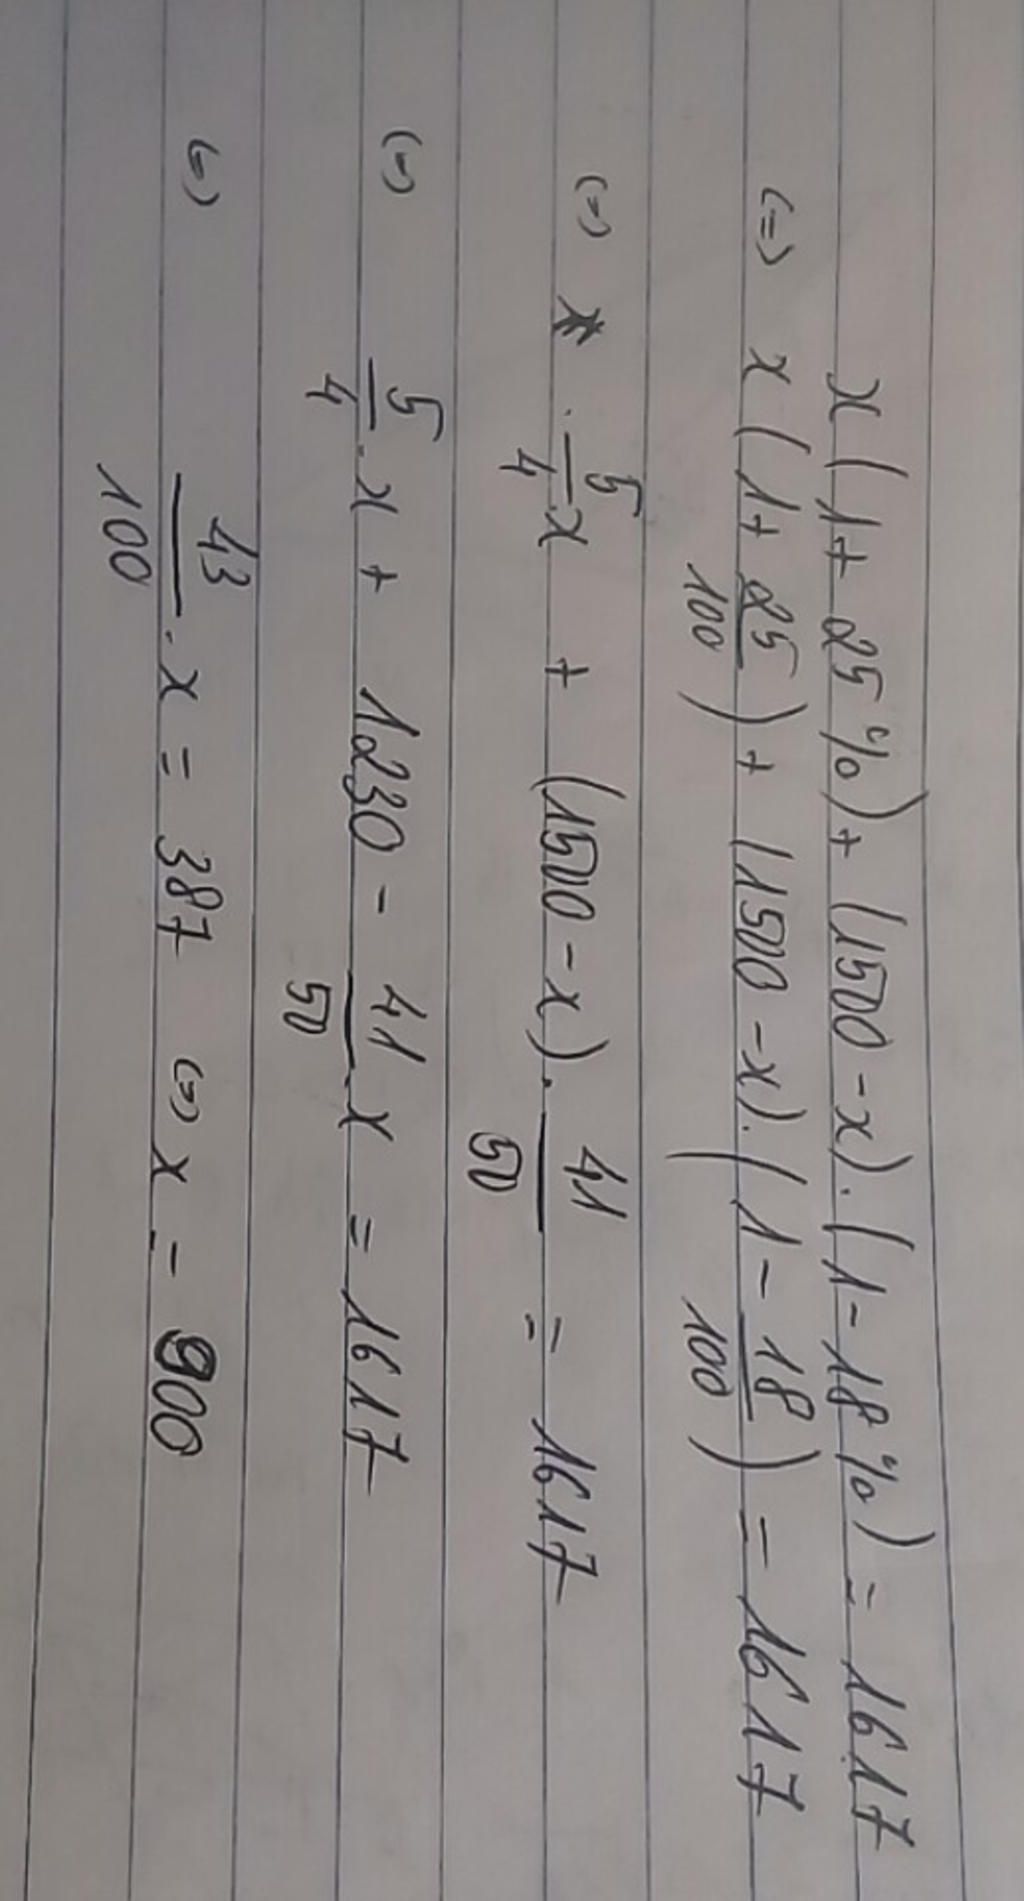 x(1+25%)+(1500-x).(1-18%)=1617
(=) x(1+25/100)+(1500-x).(1-18/100)=1617
(=) . 5/4 x + (1500-x). 41/50 = 1617
(=) 5/4 . x + 1230 - 41/50 . x = 1617
(=) 43/100 . x = 387 (=) x = 900